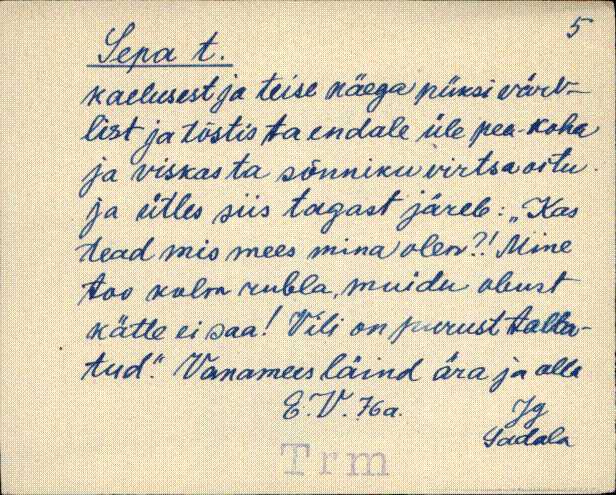 5
Sepa t.
kaelusest ja teise käega püksi värv-
list ja tõstis ta endale üle pea-koha
ja viskas ta sõnniku virtsa
ja ütles siis tagast järele: „Kas
tead mis mees mina olen?! Mine
too kolm rubla, muidu obust
kätte ei saa! Vili on purust talla-
tud." Vanamees läind ära ja olla
E. V. Ha. Jg
Sadala
Trm